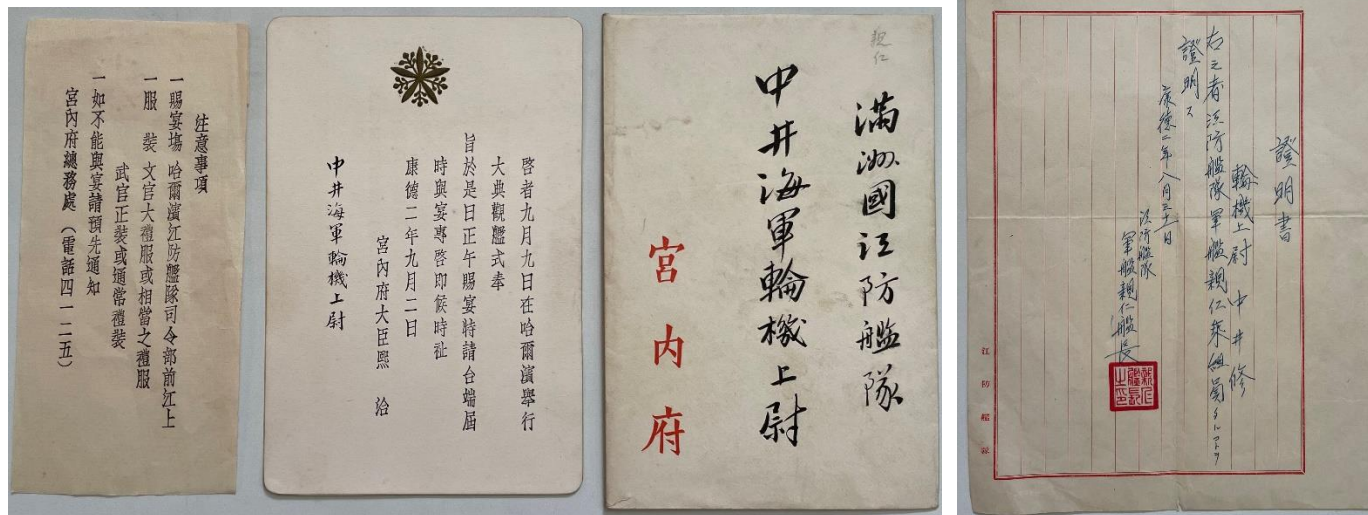 注意事項
一賜宴塲　哈爾濱江防艦隊司令部前江上
一服　裝　文官大禮服或相當之禮服
武官正裝或通常禮裝
一如不能與宴請預先通知
宮內府總務處（電話四一二五）
啓者九月九日在哈爾濱舉行
大典觀艦式奉
旨於是日正午賜宴特請台端屆
時與宴專啓即候時祉
宮內府大臣熙　洽
康德二年九月二日
中井海軍輪機上尉
親仁
滿洲國江防艦隊
中井海軍輪機上尉
宮內府
證明書
輪機上尉　中井修
右之者江防艦隊軍艦親仁乘組員タルコトヲ
證明ス
康德二年八月三十一日
江防艦隊
軍艦親仁艦長
親仁艦長之印
江防艦隊